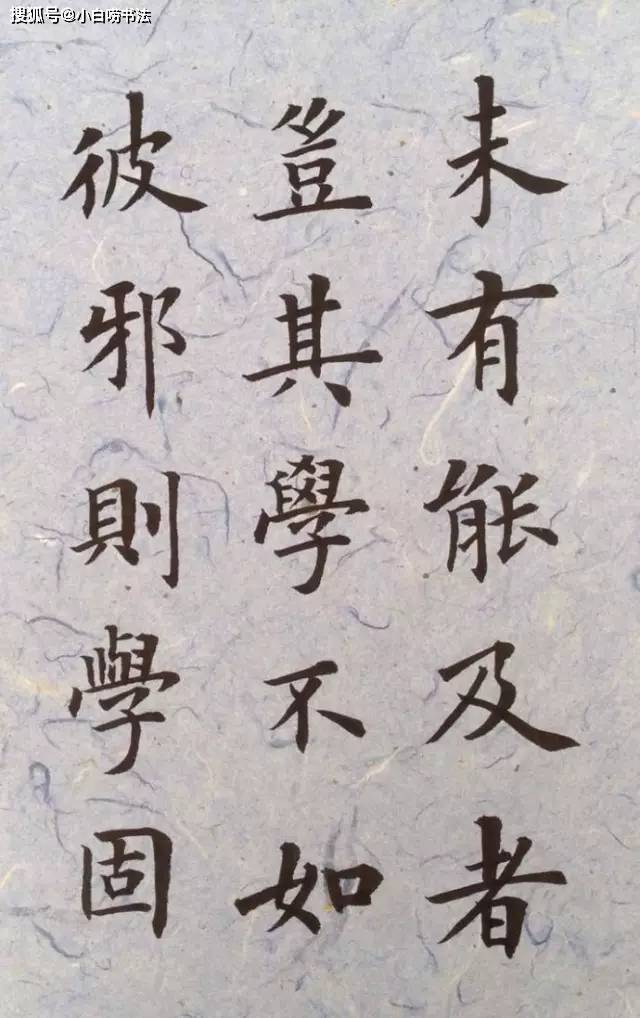 搜狐号@小白唠书法
未有能及者
豈其學不如
彼邪則學固